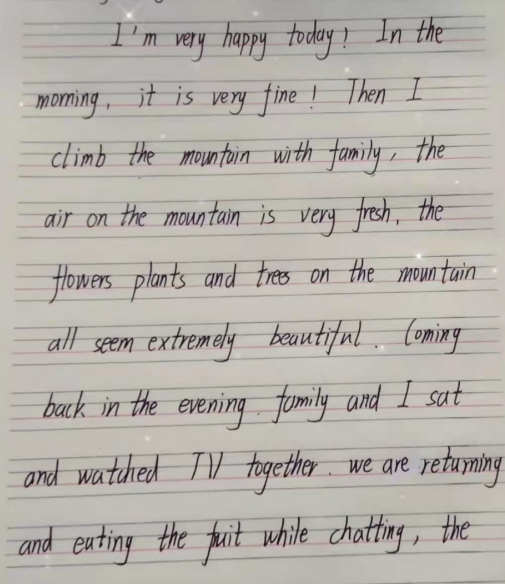 I'm very happy today! In the
morning, it is very fine! Then I
climb the mountain with family, the
air on the mountain is very fresh, the
flowers plants and trees on the mountain
all seem extremely beautiful. Coming
back in the evening. family and I sat
and watched TV together. we are returning
and eating the fuit while chatting, the